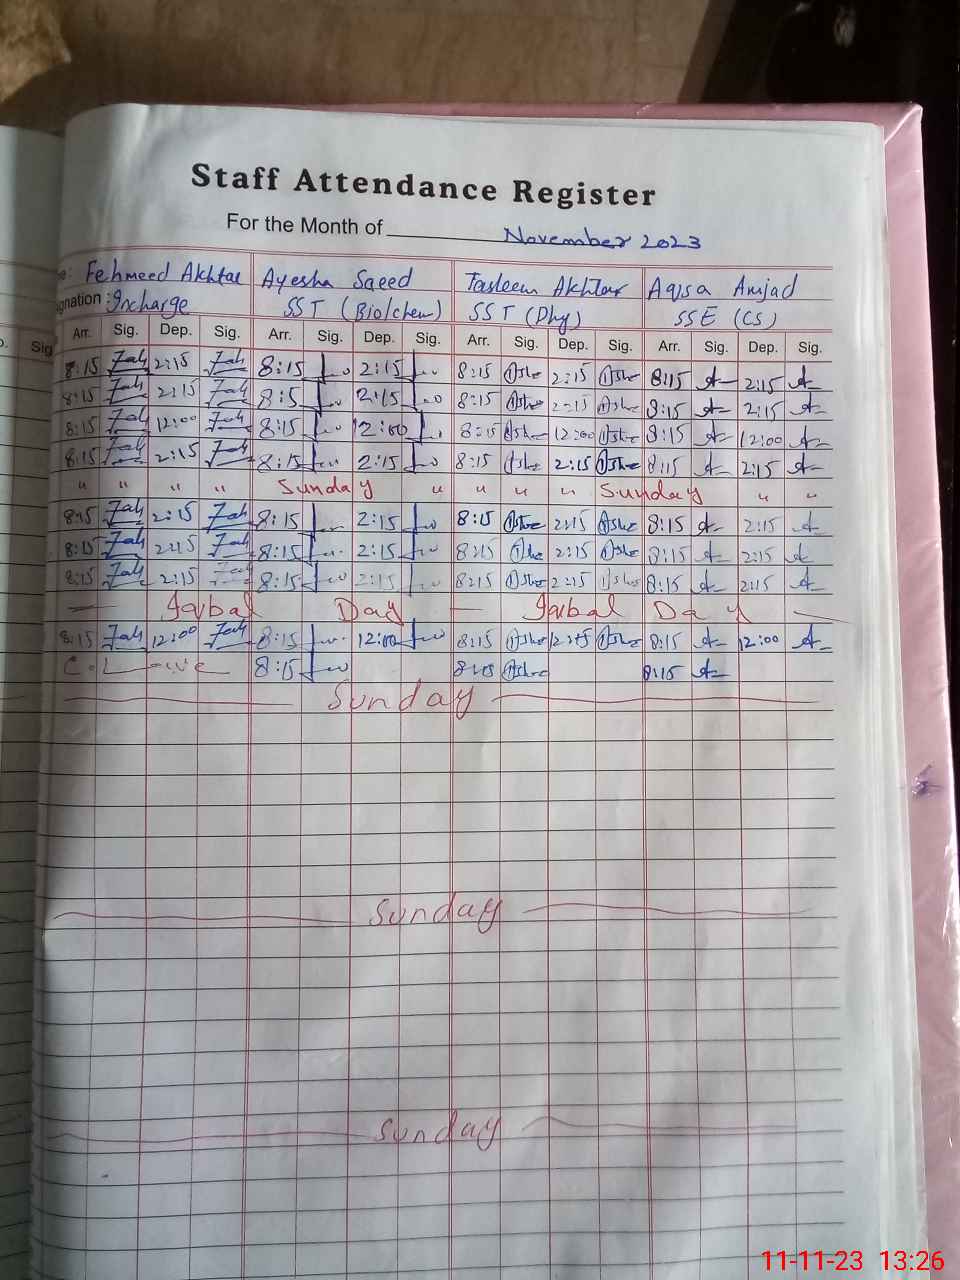 Staff Attendance Register
For the Month of November 2023
e: Fehmeed Akhtar Ayesha Saeed Tasleem Akhtar Aqsa Amjad
gnation : Incharge SST (Bio/chem) SST (Phy) SSE (CS)
p. Sig Arr. Sig. Dep. Sig. Arr. Sig. Dep. Sig. Arr. Sig. Dep. Sig. Arr. Sig. Dep. Sig.
8:15 2:15 8:15 2:15 8:15 2:15 8:15 2:15
8:15 2:15 8:5 2:15 8:15 2:15 8:15 2:15
8:15 12:00 8:15 12:00 8:15 12:00 8:15 12:00
8:15 2:15 8:15 2:15 8:15 2:15 8:15 2:15
" " " " Sunday " " " " Sunday " "
8:15 2:15 8:15 2:15 8:15 2:15 8:15 2:15
8:15 2:15 8:15 2:15 8:15 2:15 8:15 2:15
8:15 2:15 8:15 2:15 8:15 2:15 8:15 2:15
— Iqbal Day — Iqbal Day —
8:15 12:00 8:15 12:00 8:15 8:15 12:00
C. Leave 8:15 8:15 8:15
Sunday
Sunday
Sunday
11-11-23 13:26